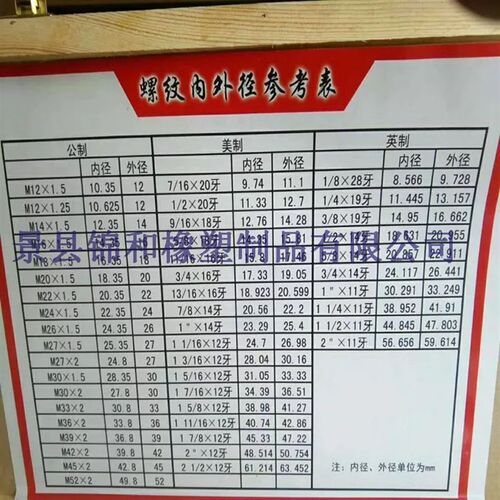 螺纹内外径参考表
公制 美制 英制
内径 外径 内径 外径 内径 外径
M12×1.5 10.35 12 7/16×20牙 9.74 11.1 1/8×28牙 8.566 9.728
M12×1.25 10.625 12 1/2×20牙 11.33 12.7 1/4×19牙 11.445 13.157
M14×1.5 12.35 14 9/16×18牙 12.76 14.28 3/8×19牙 14.95 16.662
景县锦和橡塑制品有限公司
15.81 1/2×14牙 18.631 20.955
17.46 5/8×14牙 20.857 22.911
M20×1.5 18.35 20 3/4×16牙 17.33 19.05 3/4×14牙 24.117 26.441
M22×1.5 20.35 22 13/16×16牙 18.923 20.599 1"×11牙 30.291 33.249
M24×1.5 22.35 24 7/8×14牙 20.56 22.2 1 1/4×11牙 38.952 41.91
M26×1.5 24.35 26 1"×14牙 23.29 25.4 1 1/2×11牙 44.845 47.803
M27×1.5 25.35 27 1 1/16×12牙 24.7 26.98 2"×11牙 56.656 59.614
M27×2 24.8 27 1 3/16×12牙 28.04 30.16
M30×1.5 28.35 30 1 5/16×12牙 31.05 33.33
M30×2 27.8 30 1 7/16×12牙 34.39 36.51
M33×2 30.8 33 1 5/8×12牙 38.98 41.27
M36×2 33.8 36 1 11/16×12牙 40.74 42.86
M39×2 36.8 39 1 7/8×12牙 45.33 47.22
M42×2 39.8 42 2"×12牙 48.514 50.754
M45×2 42.8 45 2 1/2×12牙 61.214 63.452
M52×2 49.8 52
注：内径、外径单位为mm